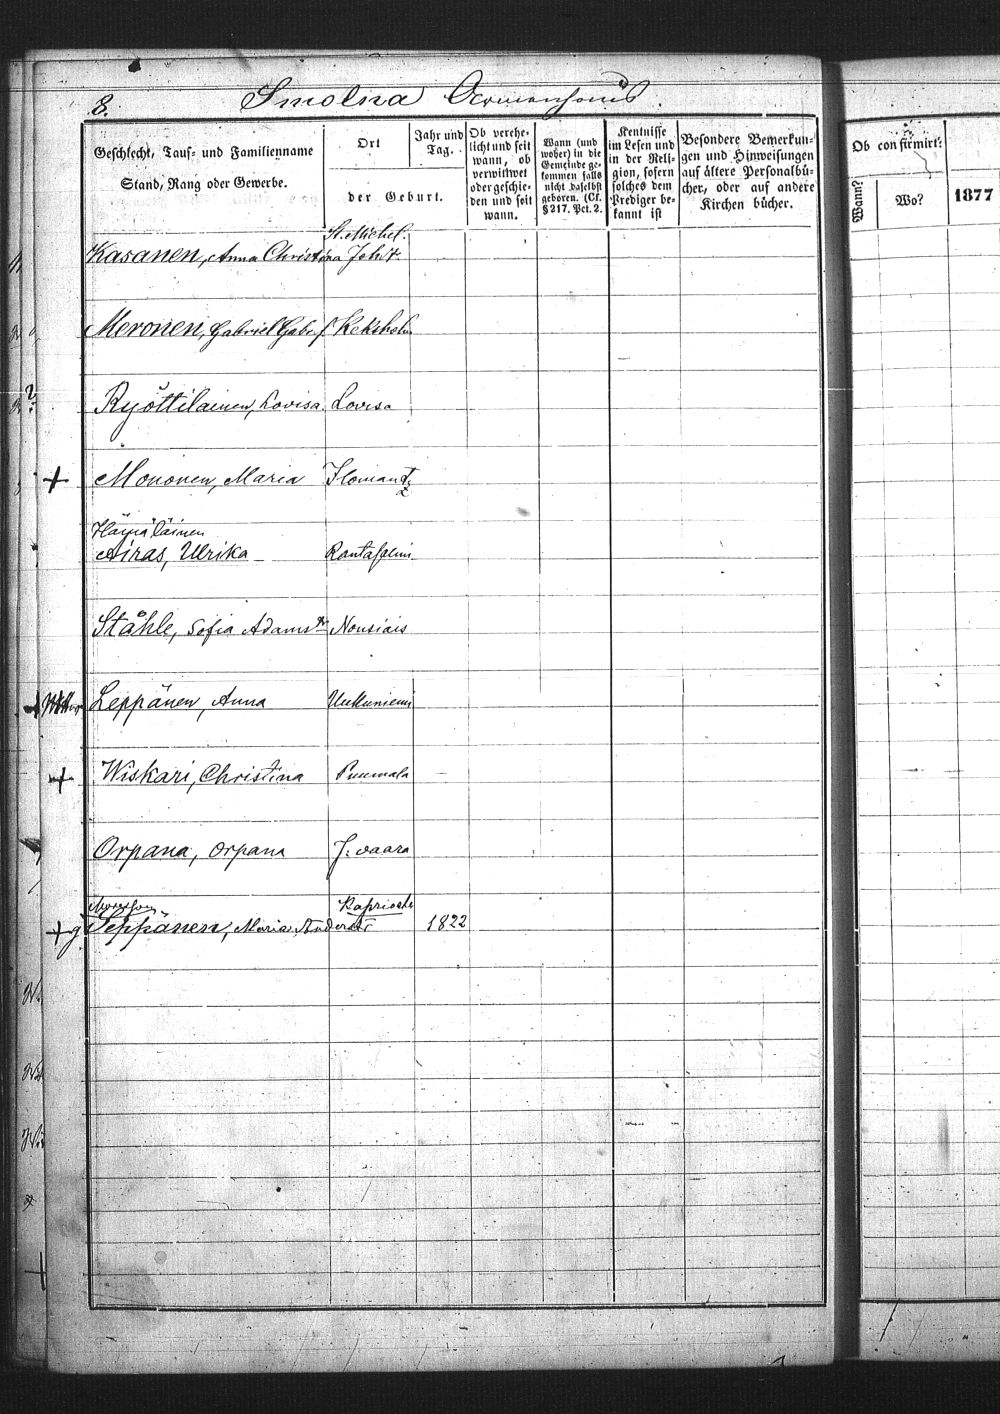 8. Smolna Armenhaus.
Geschlecht, Tauf- und Familienname
Stand, Rang oder Gewerbe.
Ort
Jahr und
Tag.
der Geburt.
Ob verehe-
licht und seit
wann, ob
verwittwet
oder geschie-
den und seit
wann.
Wann (und
woher) in die
Gemeinde ge-
kommen falls
nicht daselbst
geboren. (Cf.
§ 217. Pct. 2.
Kentnisse
im Lesen und
in der Reli-
gion, sofern
solches dem
Prediger be-
kannt ist
Besondere Bemerkun-
gen und Hinweisungen
auf ältere Personalbü-
cher, oder auf andere
Kirchen bücher.
Ob confirmirt:
Wann?
Wo?
1877
St. Michel.
Kasanen, Anna Christina Joh.
Meronen, Gabriel Gabr. Kexholm
Ryöttiläinen, Lovisa. Lovisa
+ Mononen, Maria Ilomantz
Häyräläinen
Airas, Ulrika Rantasalmi
Ståhle, Sofia Adams Nousiais
Leppänen, Anna Uukuniemi
+ Wiskari, Christina Puumala
Orpana, Orpana J:vaara
Kaprio
+ Seppänen, Maria Anders 1822